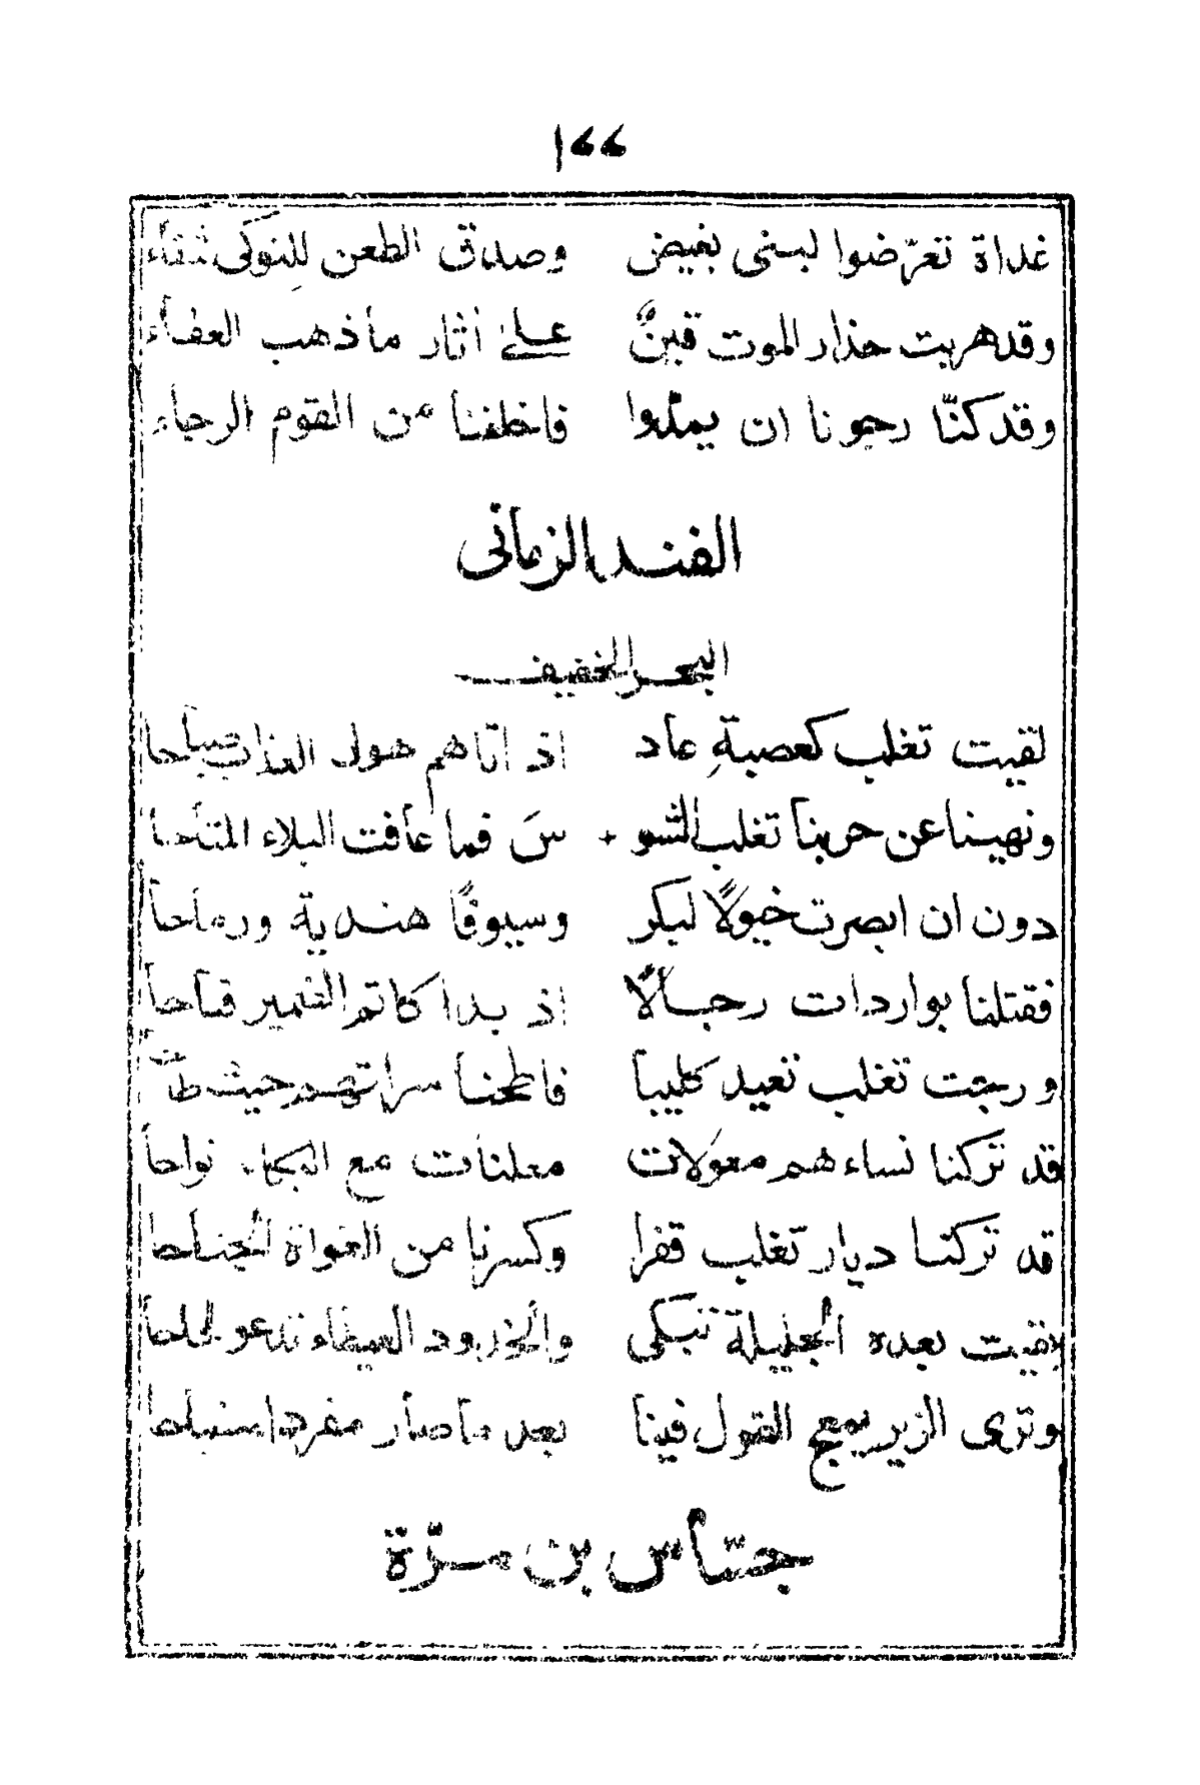 ١٤٤
غداة تعرّضوا لبنى بغيض وصدق الطعن للنوكى شفاء
وقد هربت حذار الموت قينٌ على أثار ما ذهب العفاء
وقد كنّا رجونا ان يمدّوا فاخلفنا من القوم الرجاء
الفند الزمانى
البحر الخفيف
لقيت تغلب كعصبةِ عاد اذ اتاهم هول العذاب صباحا
ونهينا عن حربنا تغلب الشو سَ فما عافت البلاء المتاحا
دون ان ابصرت خيولًا لبكر وسيوفًا هندية ورماحا
فقتلنا بواردات رجالًا اذ بدا كاتم الضمير فباحا
ورجت تغلب تعيد كليبا فاطحنا سراتهم حيث طاحا
قد تركنا نساءهم معولات معلنات مع البكاء نواحا
قد تركنا ديار تغلب قفرا وكسرنا من الغواة الجناحا
بقيت بعده الجليلة تبكى والخرود العيطاء تدعو
وترى الزير يمعج القول فينا بعد ما صار مفردا
جسّاس بن مرّة